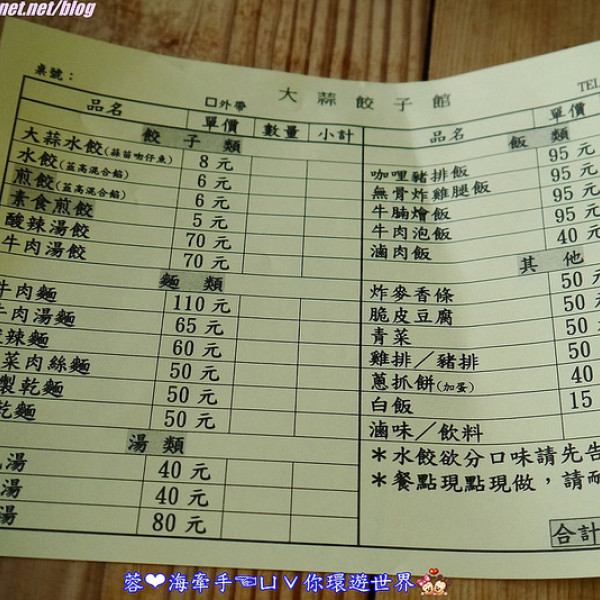 net.net/blog
桌號：
口外帶
大蒜餃子館
TEL
品名 單價 數量 小計
餃子類
大蒜水餃(蒜苗吻仔魚) 8元
水餃(韮高混合餡) 6元
煎餃(韮高混合餡) 6元
素食煎餃 5元
酸辣湯餃 70元
牛肉湯餃 70元
麵類
牛肉麵 110元
牛肉湯麵 65元
辣麵 60元
菜肉絲麵 50元
製乾麵 50元
乾麵 50元
湯類
湯 40元
湯 40元
湯 80元
品名 單價
飯類
咖哩豬排飯 95元
無骨炸雞腿飯 95元
牛腩燴飯 95元
牛肉泡飯 95元
滷肉飯 40元
其他
炸麥香條 50元
脆皮豆腐 50元
青菜 50
雞排／豬排 50
蔥抓餅(加蛋) 40
白飯 15
滷味／飲料
＊水餃欲分口味請先告
＊餐點現點現做，請耐
合計
蓉❤海牽手☜ㄩㄨ你環遊世界